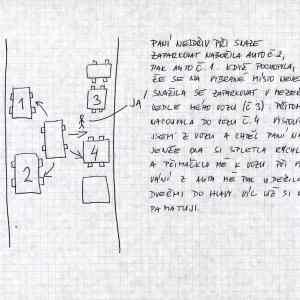 PANÍ NEJDŘÍV PŘI SNAZE
ZAPARKOVAT NABOŘILA AUTO Č.2,
PAK AUTO Č.1. KDYŽ POCHOPILA,
ŽE SE NA VYBRANÉ MÍSTO NEVE
SNAŽILA SE ZAPARKOVAT V MEZEŘE
VEDLE MÉHO VOZU (Č.3). PŘITOM
NACOUVALA DO VOZU Č.4. VYSKOČIL
JSEM Z VOZU A CHTĚL PANÍ
JENŽE ONA SI SPLETLA RYCHL
A PŘIMÁČKLA MĚ K VOZU. PŘI
Z AUTA MĚ PAK UDEŘILA
DVEŘMI DO HLAVY. VÍC UŽ SI
PAMATUJI.
JÁ
1
2
3
4